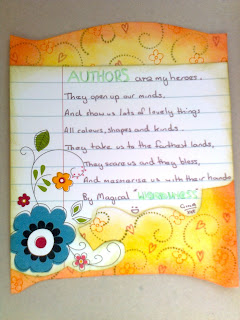 AUTHORS are my heroes.
They open up our minds,
And show us lots of lovely things
All colours, shapes and kinds.
They take us to the furthest lands,
They scare us and they bless,
And mesmerise us with their hands
By Magical